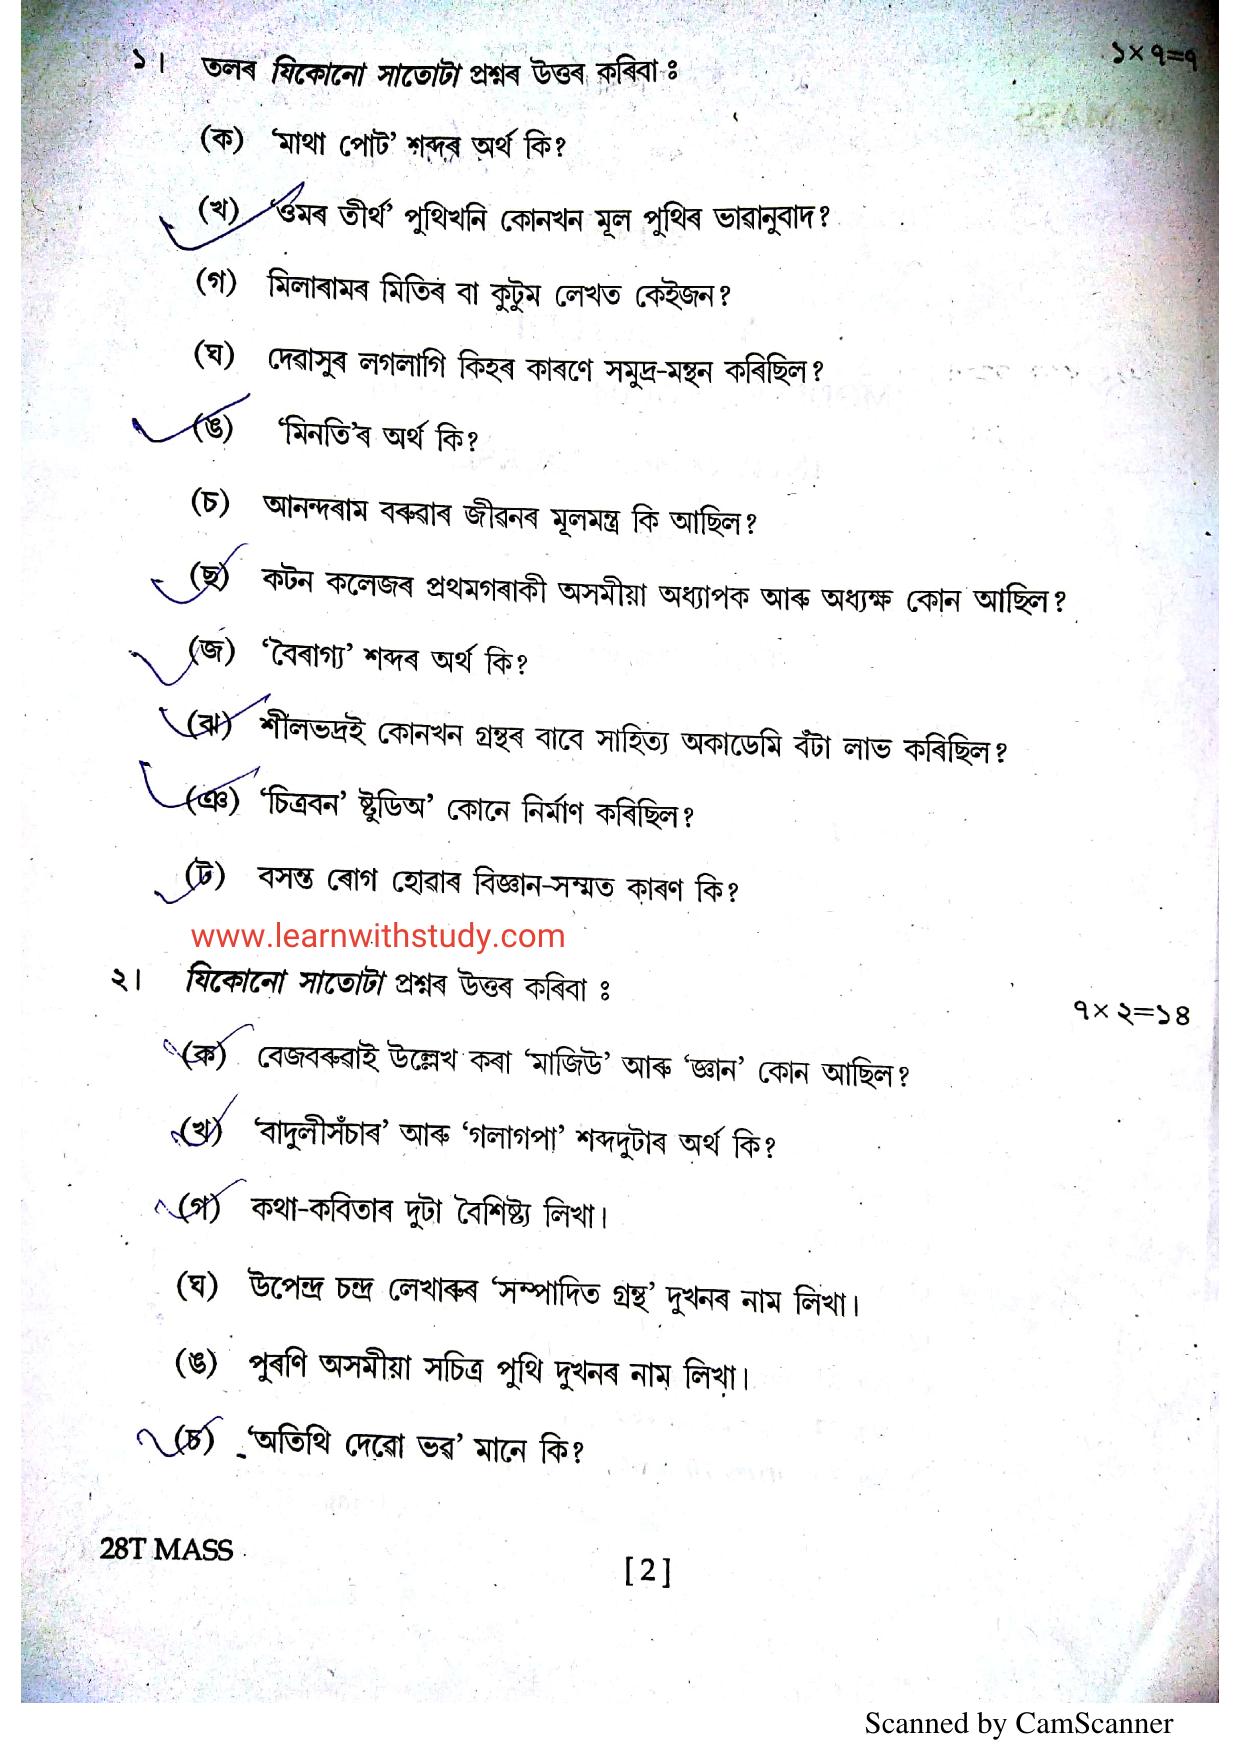 ১×৭=৭
১। তলৰ যিকোনো সাতোটা প্ৰশ্নৰ উত্তৰ কৰিবা ঃ
(ক) ‘মাথা পোট’ শব্দৰ অৰ্থ কি?
(খ) ‘ওমৰ তীৰ্থ’ পুথিখনি কোনখন মূল পুথিৰ ভাৱানুবাদ?
(গ) মিলাৰামৰ মিতিৰ বা কুটুম লেখত কেইজন?
(ঘ) দেৱাসুৰ লগলাগি কিহৰ কাৰণে সমুদ্ৰ-মন্থন কৰিছিল?
(ঙ) ‘মিনতি’ৰ অৰ্থ কি?
(চ) আনন্দৰাম বৰুৱাৰ জীৱনৰ মূলমন্ত্ৰ কি আছিল?
(ছ) কটন কলেজৰ প্ৰথমগৰাকী অসমীয়া অধ্যাপক আৰু অধ্যক্ষ কোন আছিল?
(জ) ‘বৈৰাগ্য’ শব্দৰ অৰ্থ কি?
(ঝ) শীলভদ্ৰই কোনখন গ্ৰন্থৰ বাবে সাহিত্য অকাডেমি বঁটা লাভ কৰিছিল?
(ঞ) ‘চিত্ৰবন’ ষ্টুডিঅ’ কোনে নিৰ্মাণ কৰিছিল?
(ট) বসন্ত ৰোগ হোৱাৰ বিজ্ঞান-সম্মত কাৰণ কি?
www.learnwithstudy.com
২। যিকোনো সাতোটা প্ৰশ্নৰ উত্তৰ কৰিবা ঃ
৭×২=১৪
(ক) বেজবৰুৱাই উল্লেখ কৰা ‘মাজিউ’ আৰু ‘জ্ঞান’ কোন আছিল?
(খ) ‘বাদুলীসঁচাৰ’ আৰু ‘গলাগপা’ শব্দদুটাৰ অৰ্থ কি?
(গ) কথা-কবিতাৰ দুটা বৈশিষ্ট্য লিখা।
(ঘ) উপেন্দ্ৰ চন্দ্ৰ লেখাৰুৰ ‘সম্পাদিত গ্ৰন্থ’ দুখনৰ নাম লিখা।
(ঙ) পুৰণি অসমীয়া সচিত্ৰ পুথি দুখনৰ নাম লিখা।
(চ) ‘অতিথি দেৱো ভৱ’ মানে কি?
28T MASS
[2]
Scanned by CamScanner